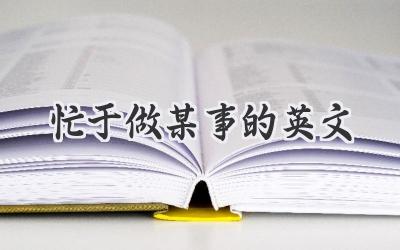 忙于做某事的英文